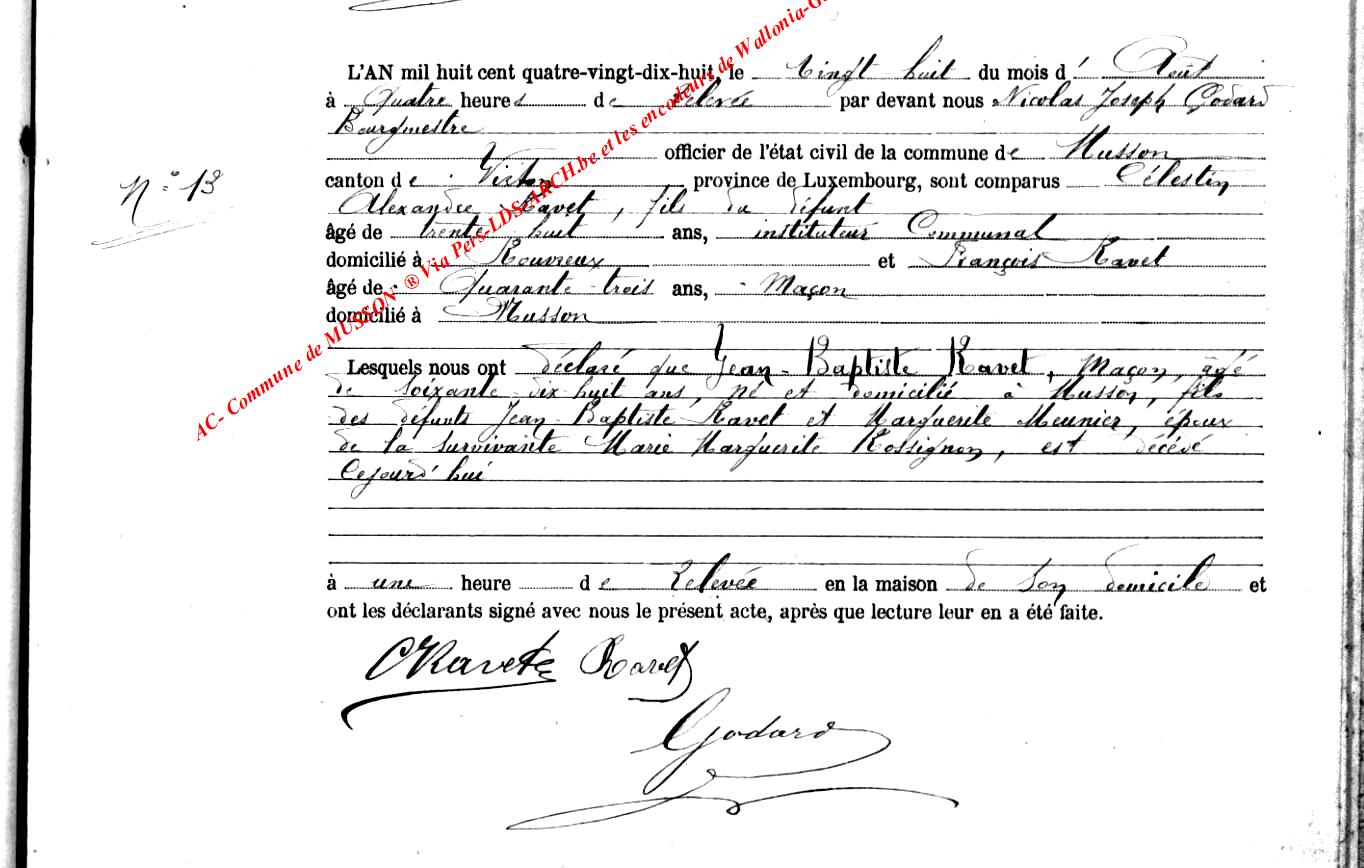 AC- Commune de MUSSON ® Via Pers-LDS-ARCH.be et les encodeurs de Wallonia-G
L'AN mil huit cent quatre-vingt-dix-huit, le Vingt huit du mois d' Août
à Quatre heures de Relevée par devant nous Nicolas Joseph Godard
Bourgmestre
officier de l'état civil de la commune de Musson
N° 13
canton de Virton province de Luxembourg, sont comparus Célestin
Alexandre Ravet, fils du défunt
âgé de trente huit ans, instituteur Communal
domicilié à Rouvreux et François Ravet
âgé de Quarante-trois ans, Maçon
domicilié à Musson
Lesquels nous ont déclaré que Jean-Baptiste Ravet, Maçon, âgé
de soixante-dix-huit ans, né et domicilié à Musson, fils
des défunts Jean-Baptiste Ravet et Marguerite Meunier, époux
de la survivante Marie Marguerite Rossignon, est décédé
Cejourd'hui
à une heure de Relevée en la maison de son domicile et
ont les déclarants signé avec nous le présent acte, après que lecture leur en a été faite.
Ravet
Godard